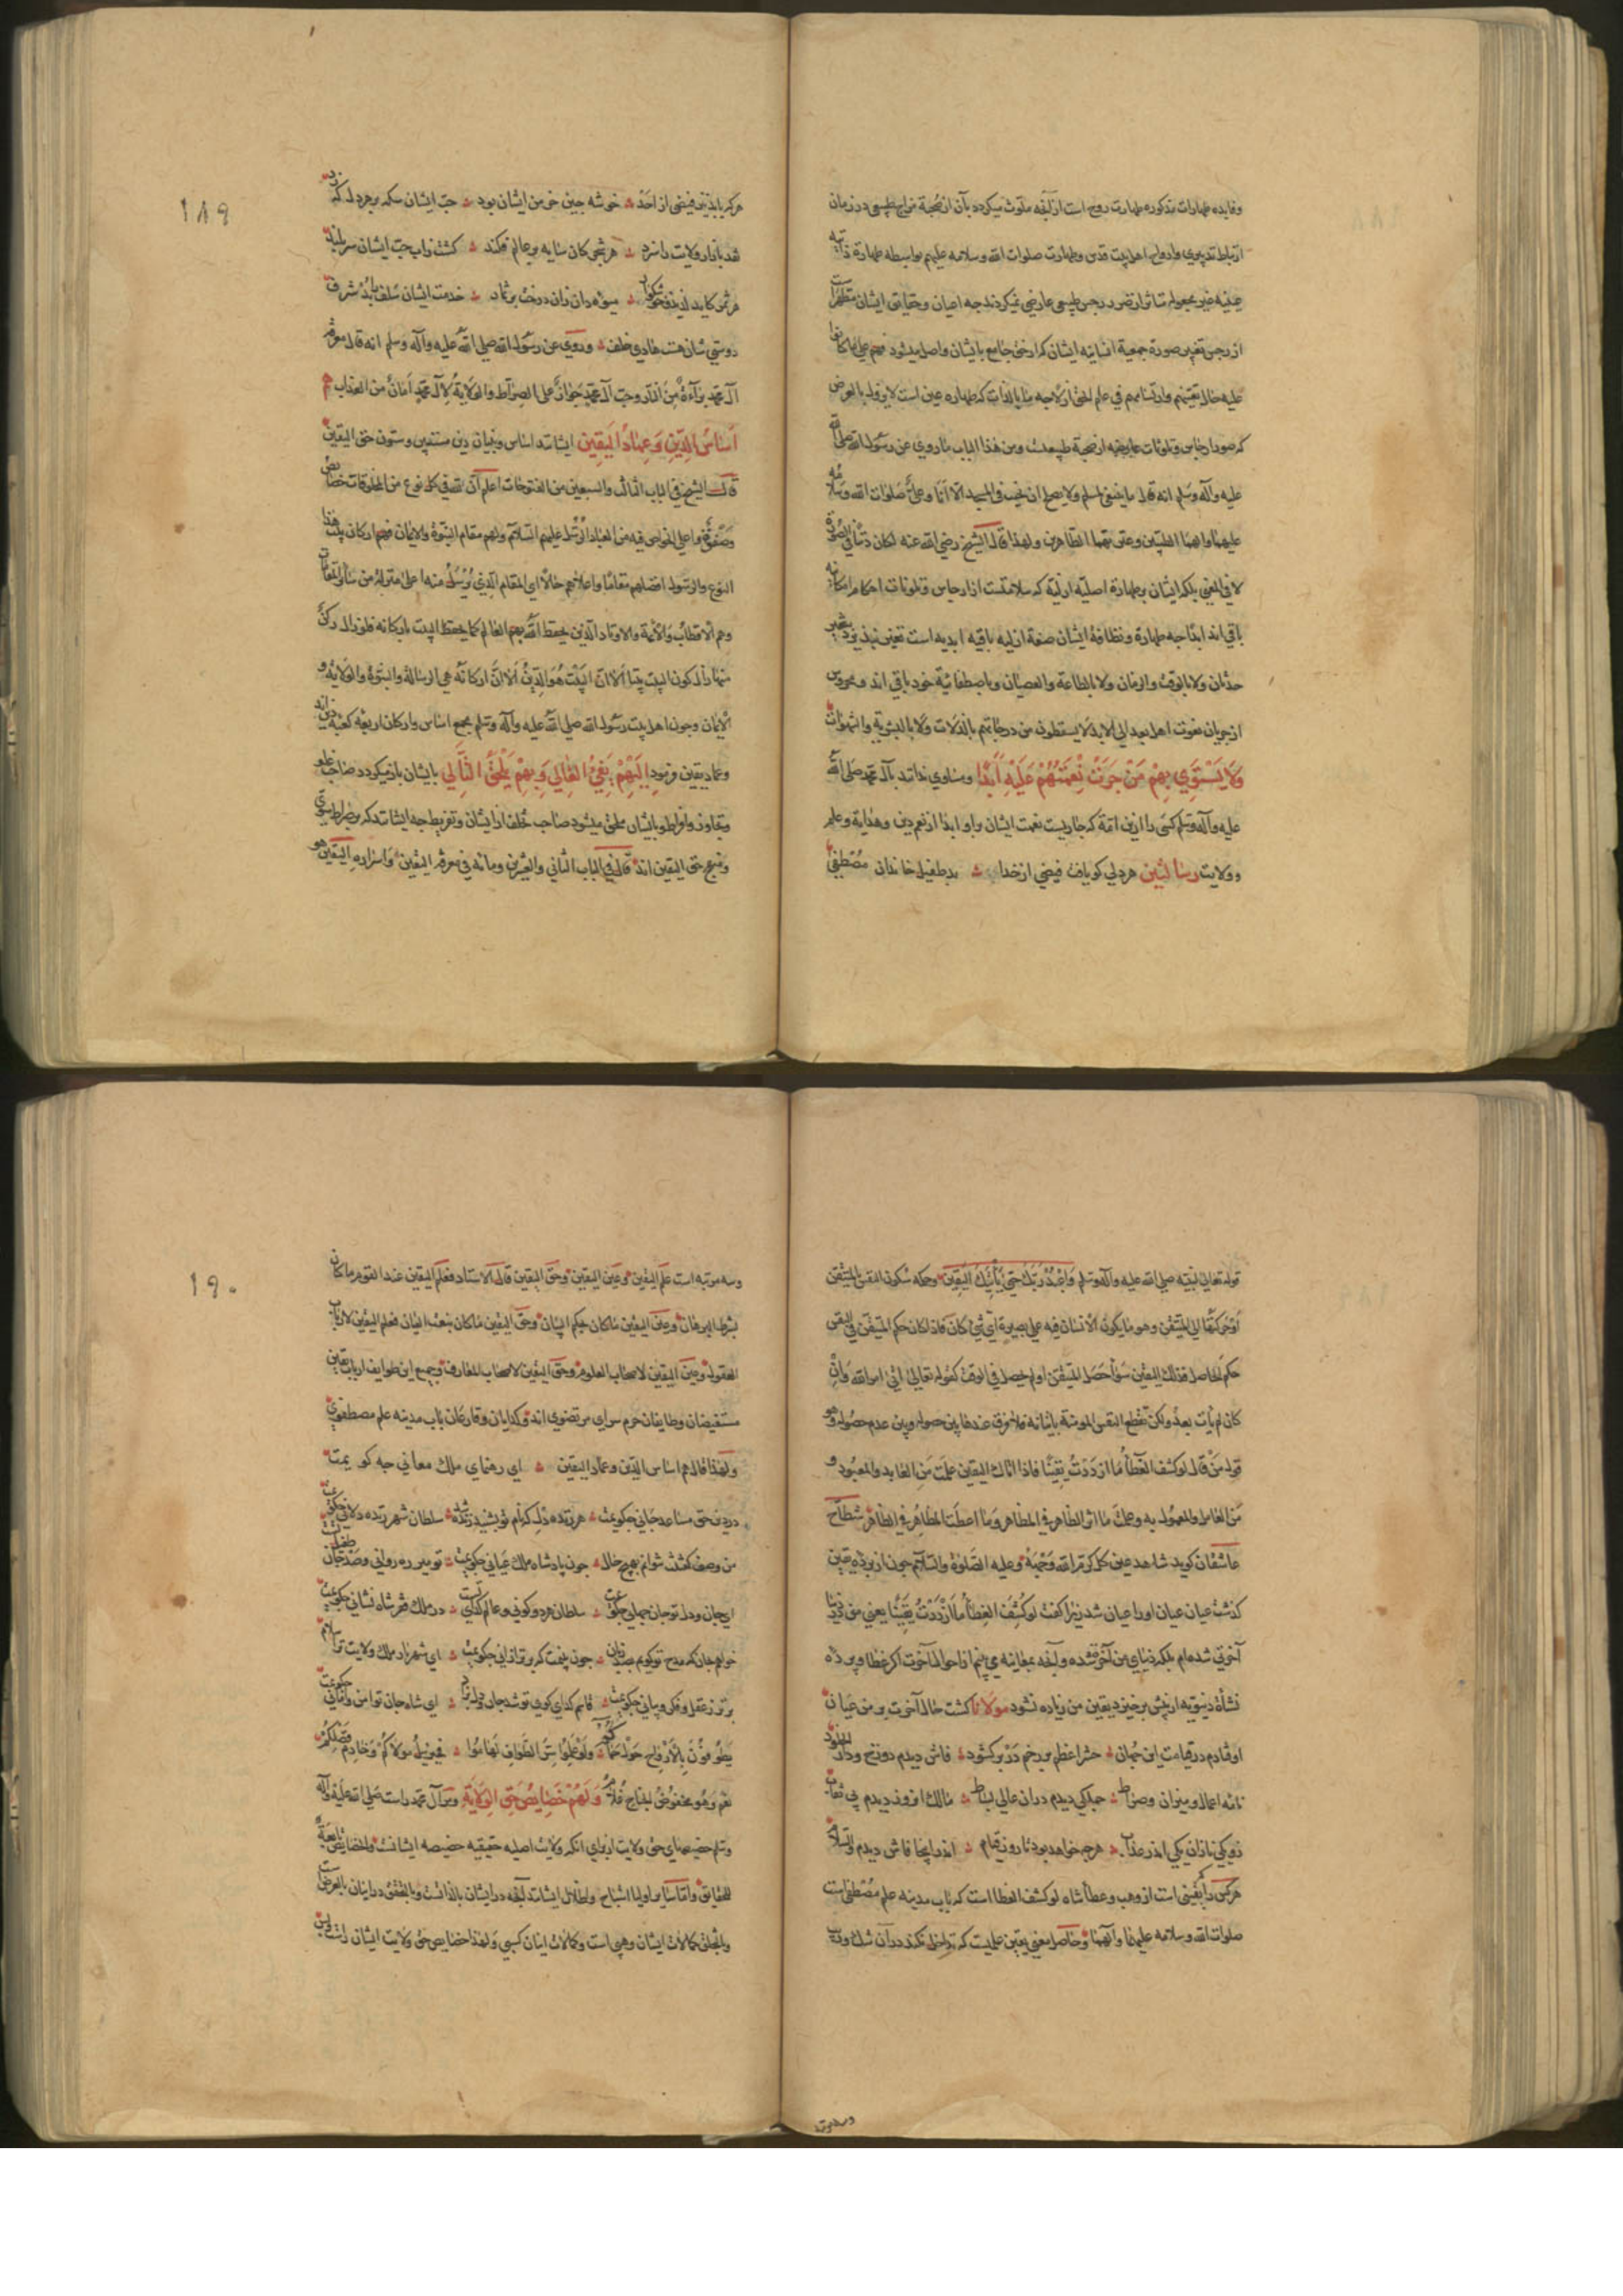 وفایده طهارات مذکوره طهارت روح است از آنچه ملوث میکردد بآن از صحبة مزاج طبیعی در زمان
ارتباط تدبیری وارواح اهل بیت قدس وطهارت صلوات الله وسلامه علیهم بواسطه طهارة ذاتیه
عینیه غیر مجعوله متاثر از تضرر رجس طبیعی عارضی نمیکردند چه اعیان وحقایق ایشان مطهرات
از رجس تغیر صورة جمعیة انسانیه ایشان که ارخق جامع بایشان واصل میشود فهم علی ما کانوا
علیه حال تعینهم وارتسامهم فی علم الحق ازلا چه ما بالذات که طهاره عین است لا یزول بالعرض
که صور ارجاس وتلوثات عارضه از صحبة طبیعت ومن هذا الباب ما روی عن رسول الله صلی الله
علیه وآله وسلم انه قال ما ینبغی لمسلم ولا یصلح ان یجنب فی المسجد الا انا وعلی صلوات الله وسلامه
علیهما وآلهما الطیبین وعترتهما الطاهرین ولهذا قال الشیخ رضی الله عنه لکان دنسا فی الصورة
لا فی المعنی بلکه ایشان بر طهارة اصلیه ازلیة که سلامتست از ارجاس وتلوثات احکام امکانیه
باقی اند ابدا چه طهارة ونظافة ایشان صفة ازلیه باقیه ابدیه است تغیر نپذیرد بتغیر
حدثان ولا بالوقت والزمان ولا بالطاعة والعصیان وباصطفائیة خود باقی اند ومحروس
از جریان نعوت اهل بعد الی الابد لا یسقطون من درجاتهم بالذلات ولا بالبشریة والشهوات
وَلَا يَسْتَوِي بِهِمْ مَنْ جَرَتْ نِعْمَتُهُمْ عَلَيْهِ أَبَدًا ومساوی نداند بآل محمد صلی الله
علیه وآله وسلم کسی را ازین امة که جاریست نعمت ایشان براو ابدا از نعم دین وهدایة وعلم
وولایت رسالتین هر دلی کو یافت فیضی از خدا بد طفیل خاندان مصطفی
۱۸۹
هر که یابد زین فیضی از احد خوشه چین خرمن ایشان بود حب ایشان سکه بر هر دل که زد
شد بدار ولایت دانرد هر شجر کان سایه بر عالم فکند کشته زاب حب ایشان سر بلند
هر ثمر کاید لذیذ وخوشکوار میوه دان زان درخت برثمار خدمت ایشان سلف را بد شرف
دوستی شان هست هادی خلف وروی عن رسول الله صلی الله علیه وآله وسلم انه قال معرفة
آل محمد براءة من النار وحب آل محمد جواز علی الصراط والولایة لآل محمد امان من العذاب هم
أَسَاسُ الدِّينِ وَعِمَادُ الْيَقِينِ ایشانند اساس وبنیان دین مستبین وستون حق الیقین
قال الشیخ فی الباب الثالث والسبعین من الفتوحات اعلم ان لله فی کل نوع من المخلوقات خصایص
وصفوة واعلی الخواص فیه من العباد الرسل علیهم السلام ولهم مقام النبوة والایمان فهم ارکان بیت هذا
النوع والرسول افضلهم مقاما واعلاهم حالا ای المقام الذی یرسل منه اعلی منزلة من سائر المقامات
وهم الاقطاب والائمة والاوتاد الذین یحفظ الله بهم العالم کما یحفظ البیت بارکانه فلو زال رکن
منها زال کون البیت بیتا الا ان البیت هو الدین الا ان ارکانه هی الرسالة والنبوة والولایة و
الایمان وچون اهل بیت رسول الله صلی الله علیه وآله وسلم مجمع اساس وارکان اربعه کعبه دین اند
وعماد یقین فرمود إِلَيْهِمْ يَفِيءُ الْغَالِي وَبِهِمْ يَلْحَقُ التَّالِي بایشان باز میکردد صاحب غلو
وتجاوز وافراط وبایشان ملحق میشود صاحب تخلف از ایشان وتفریط چه ایشانند که بر صراط سوی
ومنهج حق الیقین اند قال فی الباب الثانی والعشرین ومائة فی معرفة الیقین واسراره الیقین هو
قوله تعالی لنبیه صلی الله علیه وآله وسلم وَاعْبُدْ رَبَّكَ حَتَّى يَأْتِيَكَ الْيَقِينُ وحکمه سکون النفس بالمتیقن
او حرکتها الی المتیقن وهو ما یکون الانسان فیه علی بصیرة ای شیء کان فاذا کان حکم المتیقن فی النفس
حکم الحاصل فذلک الیقین سواء حصل المتیقن او لم یحصل فی الوقت کقوله تعالی اتی امر الله وان
کان لم یأت بعد ولکن تقطع النفس المومنة باتیانه فلا فرق عندها بین حصوله وبین عدم حصوله وهو
قول من قال لو کشف الغطاء ما ازددت یقینا فاذا اتاک الیقین علمت من العابد والمعبود و
من العامل والمعمول به وعلمت ما اثر الظاهر فی المظاهر وما اعطت المظاهر فی الظاهر شطاح
عاشقان کوید شاهد عین کلمه کرم الله وجهه وعلیه الصلوة والسلام چون از پرده یقین
کذشت عیان عیان او را عیان شد زیرا کفت لو کشف الغطاء ما ازددت یقینا یعنی من درین دنیا
آخرتی شده ام بلکه دنیای من آخرة شده وآنچه بمعاینه می بینم از احوال آخرت اکر غطا وپرده
نشأة دنیویه از پیش برخیزد یقین من زیاده نشود مولانا کشت حال آخرت بر من عیان
اوفتادم در قیامت این جهان حشر اعظم بر رخم در بر کشود فاش دیدم دوزخ ودار الخلود
نامه اعمال ومیزان وصراط جملکی دیدم دران عالی بساط مالک افزون دیدم بی ثواب
نزدیکی نازان یکی اندر عذاب هر چه خواهد بود تا روز قیام اندر اینجا فاش دیدم والسلام
هر کس را یقینی است از وهب وعطاء شاه لو کشف الغطا است که باب مدینه علم مصطفی است
صلوات الله وسلامه علیهما وآلهما وحاصل معنی یقین علمیت که تداخل نکند در آن شک وریب
۱۹۰
وسه مرتبه است علم الیقین وعین الیقین وحق الیقین قال الاستاد فعلم الیقین عند القوم ما کان
بشرط البرهان وعین الیقین ما کان بحکم البیان وحق الیقین ما کان بنعت العیان فعلم الیقین لارباب
العقول وعین الیقین لاصحاب العلوم وحق الیقین لاصحاب المعارف وجمیع این طوایف ارباب یقین
مستفیضان وطایفان حرم سرای مرتضوی اند وکدایان وقارعان باب مدینه علم مصطفوی
ولهذا قال هم اساس الدین وعماد الیقین ای رهنمای ملک معانی چه کویمت
در دین حق مساعد جانی چکویمت هر زنده دل که نام تو بشنید زنده شد سلطان شهر زنده دلانی چکویمت
من وصف کفتنت نتوانم بهیچ حال چون پادشاه ملک عیانی چکویمت تو میر ره روانی وصد جان طفیل تست
ای جان ودل تو جان جهانی چکویمت سلطان هر دو کونی وعالم کدای تست در ملک فقر شاه نشانی چکویمت
خواهم چنانکه مدح تو کویم بصد زبان چون بینمت که برتر ازانی چکویمت ای شهریار ملک ولایت ترا سلام
برتر ز عقل وفکر وبیانی چکویمت قاسم کدای کوی تو شد جان ودل بداد ای شاه جان تو امن وامانی چکویمت
یطوفون بالارواح حول حماکم ولو علموا سر الطواف لهاموا فجبریل مولاکم وخادم فضلکم
نعم وهو مخفوض الجناح غلام وَلَهُمْ خَصَائِصُ حَقِّ الْوِلَايَةِ ومر آل محمد راست صلی الله علیه وآله
وسلم خصیصهای حق ولایت از برای آنکه ولایت اصلیه حقیقیه خصیصه ایشانست والخصایص تابعة
للحقایق واما سایر اولیا اشباح واظلال ایشانند آنچه در ایشان بالذاتست وبالتحقق در اینان بالعرض است
وبالتخلق کمالات ایشان وهبی است وکمالات اینان کسبی ولهذا خصایص حق ولایت ایشان راست وبس